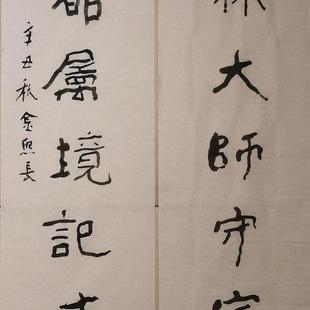 大師守
屬境記
辛丑秋金熙長